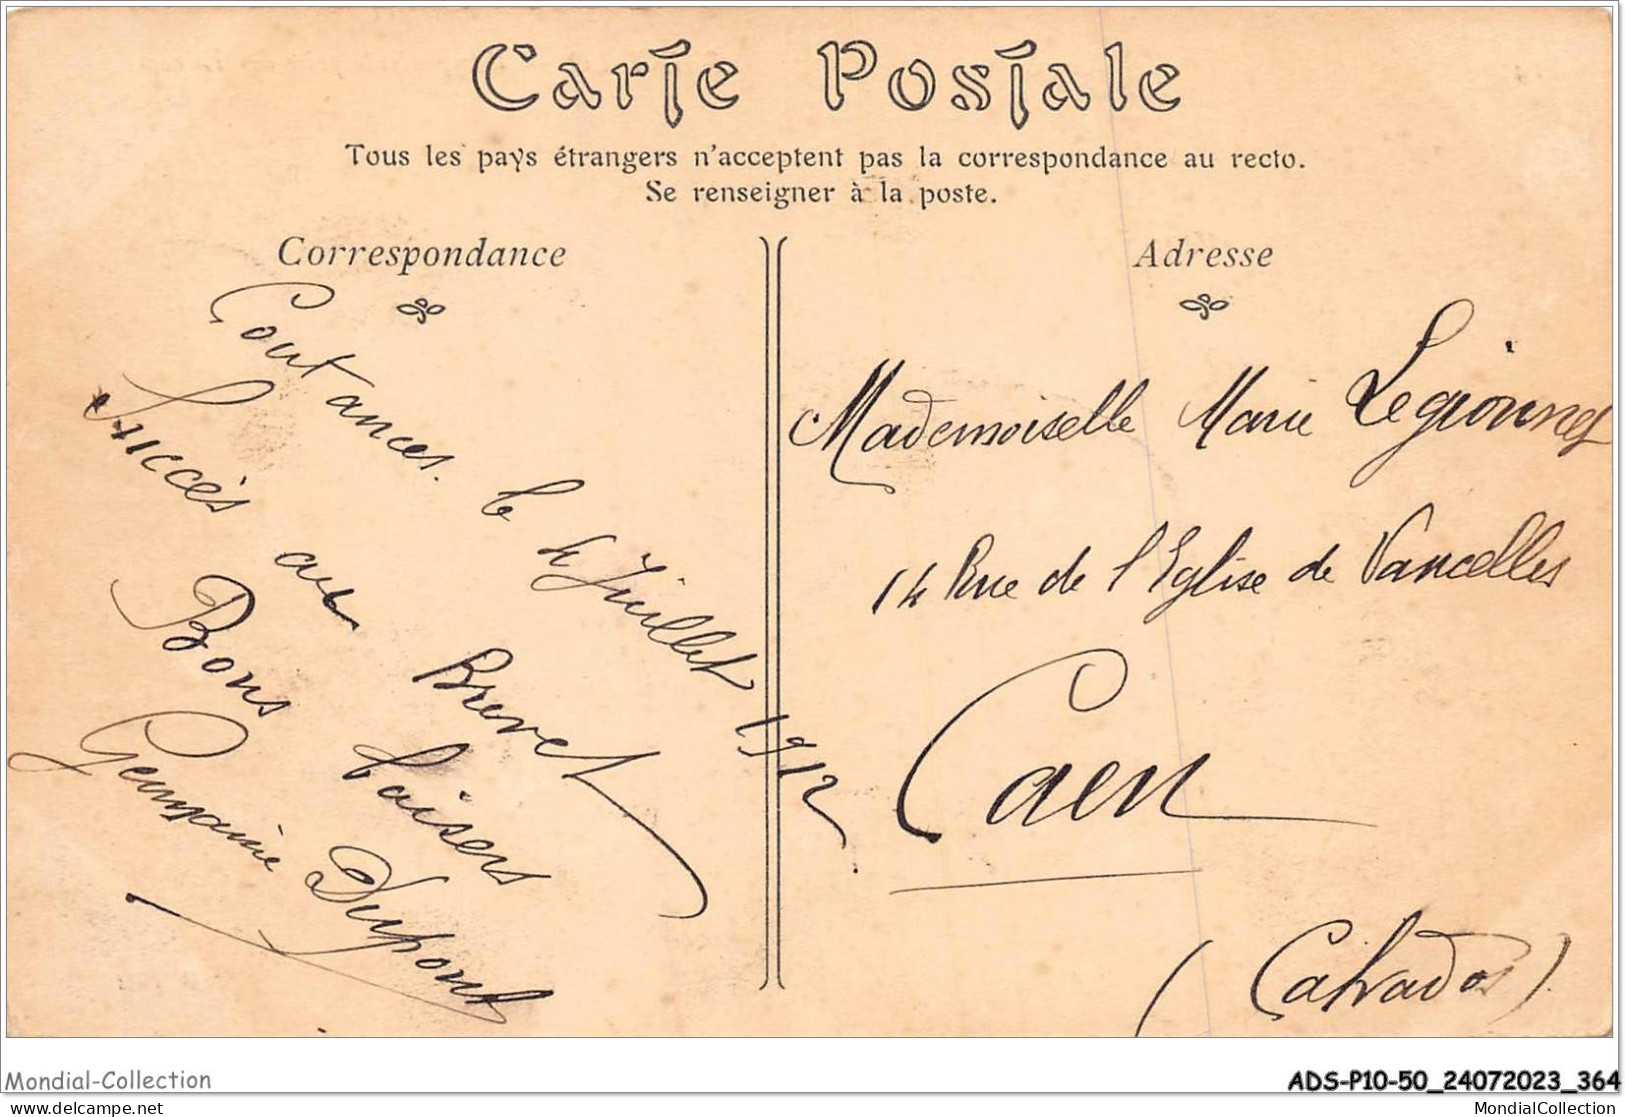 Carte Postale
Tous les pays étrangers n'acceptent pas la correspondance au recto.
Se renseigner à la poste.
Correspondance
Coutances. le 4 Juillet 1912
Succès au Brevet
Bons baisers
Germaine Dupont
Adresse
Mademoiselle Marie Legionnet
14 Rue de l'Eglise de Vaucelles
Caen
(Calvados)
Mondial-Collection
ADS-P10-50_24072023_364
www.delcampe.net
MondialCollection